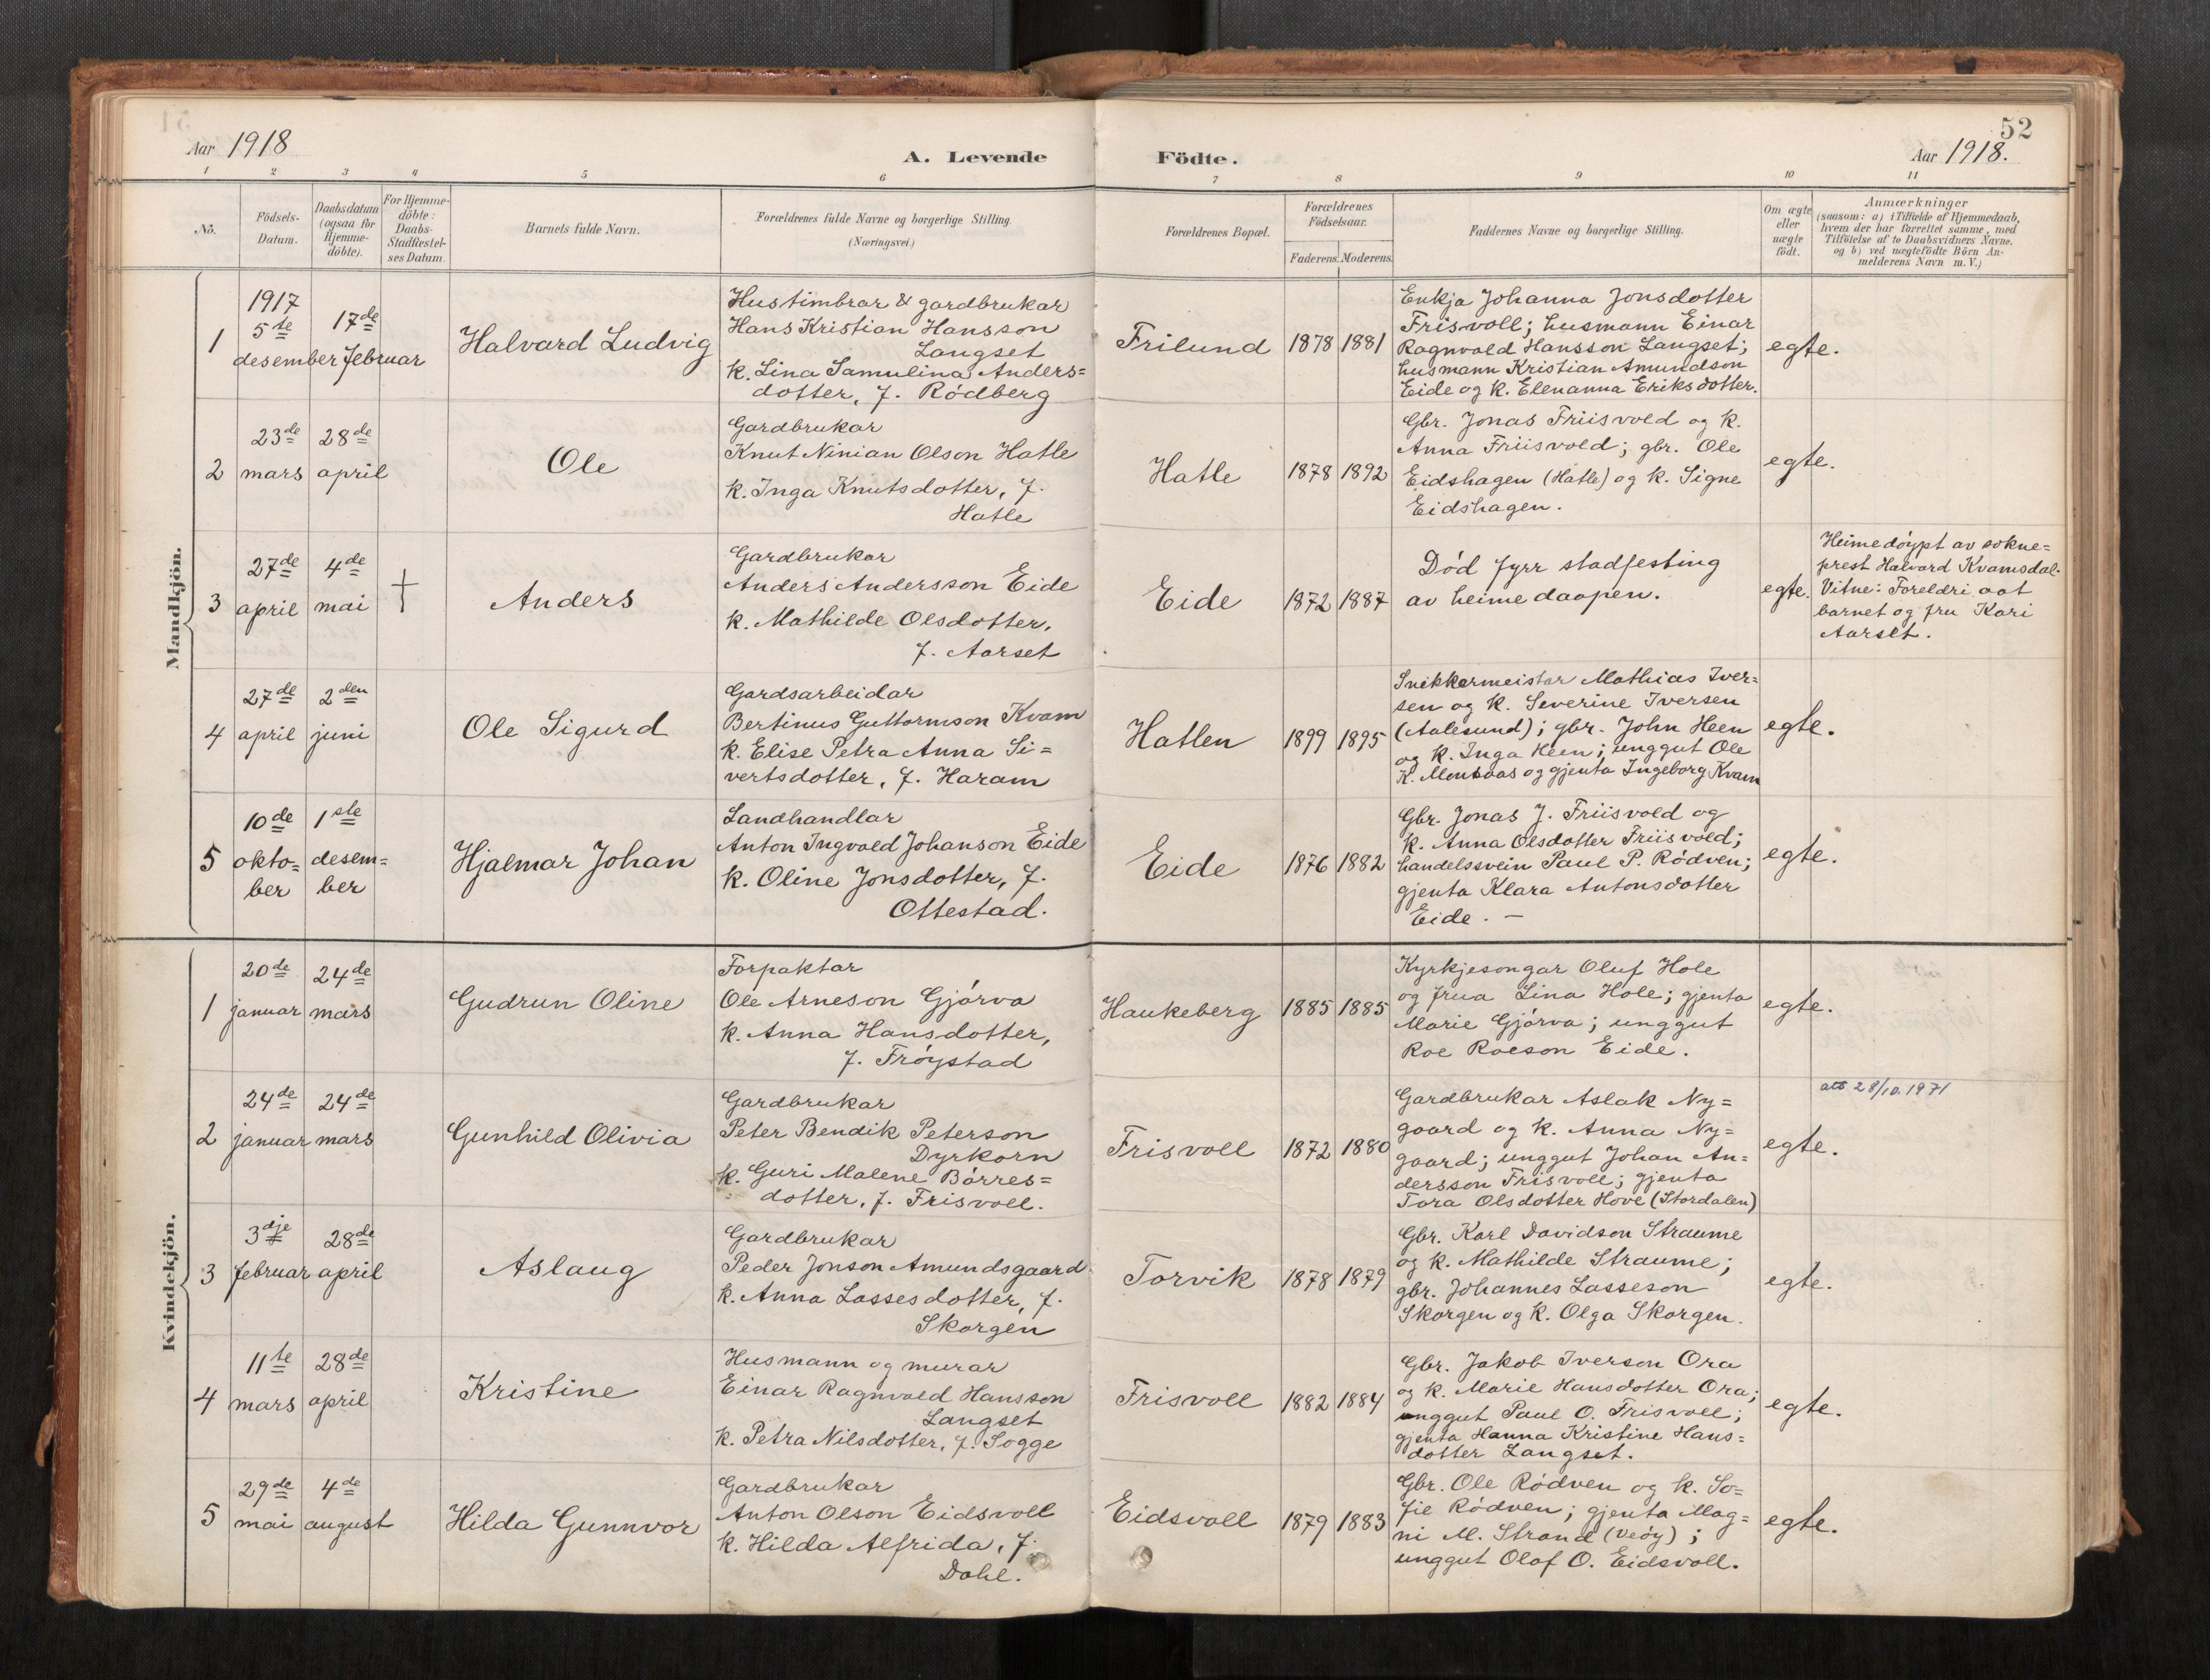 52
Aar 1918
A. Levende
Födte.
Aar 1918.
1
2
3
4
5
6
7
8
9
10
11
No.
Födsels-
Datum.
Daabsdatum
(ogsaa for
Hjemme-
döbte).
For Hjemme-
döbte:
Daabs-
Stadfæstel-
ses Datum.
Barnets fulde Navn.
Forældrenes fulde Navne og borgerlige Stilling.
(Næringsvei.)
Forældrenes Bopæl.
Forældrenes
Födselsaar.
Faderens.
Moderens.
Faddernes Navne og borgerlige Stilling.
Om ægte
eller
uægte
födt.
Anmærkninger
(saasom: a) i Tilfælde af Hjemmedaab,
hvem der har forrettet samme, med
Tilföielse af to Daabsvidners Navne,
og b) ved uægtefödte Börn An-
melderens Navn m.V.)
Mandkjön.
1
1917
5te
desember
17de
februar
Halvard Ludvig
Hustimbrar & gardbrukar
Hans Kristian Hansson
Langset
k. Lina Samulina Anders=
dotter, f. Rødberg
Frilund
1878
1881
Enkja Johanna Jonsdotter
Frisvoll; husmann Einar
Ragnvald Hansson Langset;
husmann Kristian Amundson
Eide og k. Elenanna Eriksdotter.
egte.
2
23de
mars
28de
april
Ole
Gardbrukar
Knut Ninian Olson Hatle
k. Inga Knutsdotter, f.
Hatle
Hatle
1878
1892
Gbr. Jonas Friisvold og k.
Anna Friisvold; gbr. Ole
Eidshagen (Hatle) og k. Signe
Eidshagen.
egte.
3
27de
april
4de
mai
†
Anders
Gardbrukar
Anders Andersson Eide
k. Mathilde Olsdotter,
f. Aarset
Eide
1872
1887
Död fyrr stadfesting
av heimedaapen.
egte.
Heimedøypt av sokne=
prest Halvard Kvamsdal.
Vitne: Foreldri aat
barnet og fru Kari
Aarset.
4
27de
april
2den
juni
Ole Sigurd
Gardsarbeidar
Bertinus Guttormson Kvam
k. Elise Petra Anna Si=
vertsdotter, f. Haram
Hatlen
1899
1895
Snikkarmeistar Mathias Iver=
sen og k. Severine Iversen
(Aalesund); gbr. John Heen
og k. Inga Heen; unggut Ole
K. og gjenta Ingeborg Kvam
egte.
5
10de
okto=
ber
1ste
desem=
ber
Hjalmar Johan
Landhandlar
Anton Ingvald Johanson Eide
k. Oline Jonsdotter, f.
Ottestad.
Eide
1876
1882
Gbr. Jonas J. Friisvold og
k. Anna Olsdotter Friisvold;
handelssvein Paul P. Rødven;
gjenta Klara Antonsdotter
Eide. —
egte.
Kvindekjön.
1
20de
januar
24de
mars
Gudrun Oline
Forpaktar
Ole Arneson Gjørva
k. Anna Hansdotter,
f. Frøystad
Haukeberg
1885
1885
Kyrkjesongar Oluf Hole
og frua Lina Hole; gjenta
Marie Gjørva; unggut
Roe Roeson Eide.
egte.
2
24de
januar
24de
mars
Gunhild Olivia
Gardbrukar
Peter Bendik Peterson
Dyrkorn
k. Guri Malene Børres=
dotter, f. Frisvoll.
Frisvoll
1872
1880
Gardbrukar Aslak Ny=
gaard og k. Anna Ny=
gaard; unggut Johan An=
dersson Frisvoll; gjenta
Tora Olsdotter Hove (Stordalen)
egte.
28/10.1971
3
3dje
februar
28de
april
Aslaug
Gardbrukar
Peder Jonson Amundsgaard
k. Anna Lassesdotter, f.
Skorgen
Torvik
1878
1879
Gbr. Karl Davidson Straume
og k. Mathilde Straume;
gbr. Johannes Lasseson
Skorgen og k. Olga Skorgen.
egte.
4
11te
mars
28de
april
Kristine
Husmann og murar
Einar Ragnvald Hansson
Langset
k. Petra Nilsdotter, f. Sogge
Frisvoll
1882
1884
Gbr. Jakob Iverson Ora
og k. Marie Hansdotter Ora;
unggut Paul O. Frisvoll;
gjenta Hanna Kristine Hans=
dotter Langset.
egte.
5
29de
mai
4de
august
Hilda Gunnvor
Gardbrukar
Anton Olson Eidsvoll
k. Hilda Alfrida, f.
Dahl.
Eidsvoll
1879
1883
Gbr. Ole Rødven og k. So=
fie Rødven; gjenta Mag=
ni M. Strand (Veøy);
unggut Olaf O. Eidsvoll.
egte.